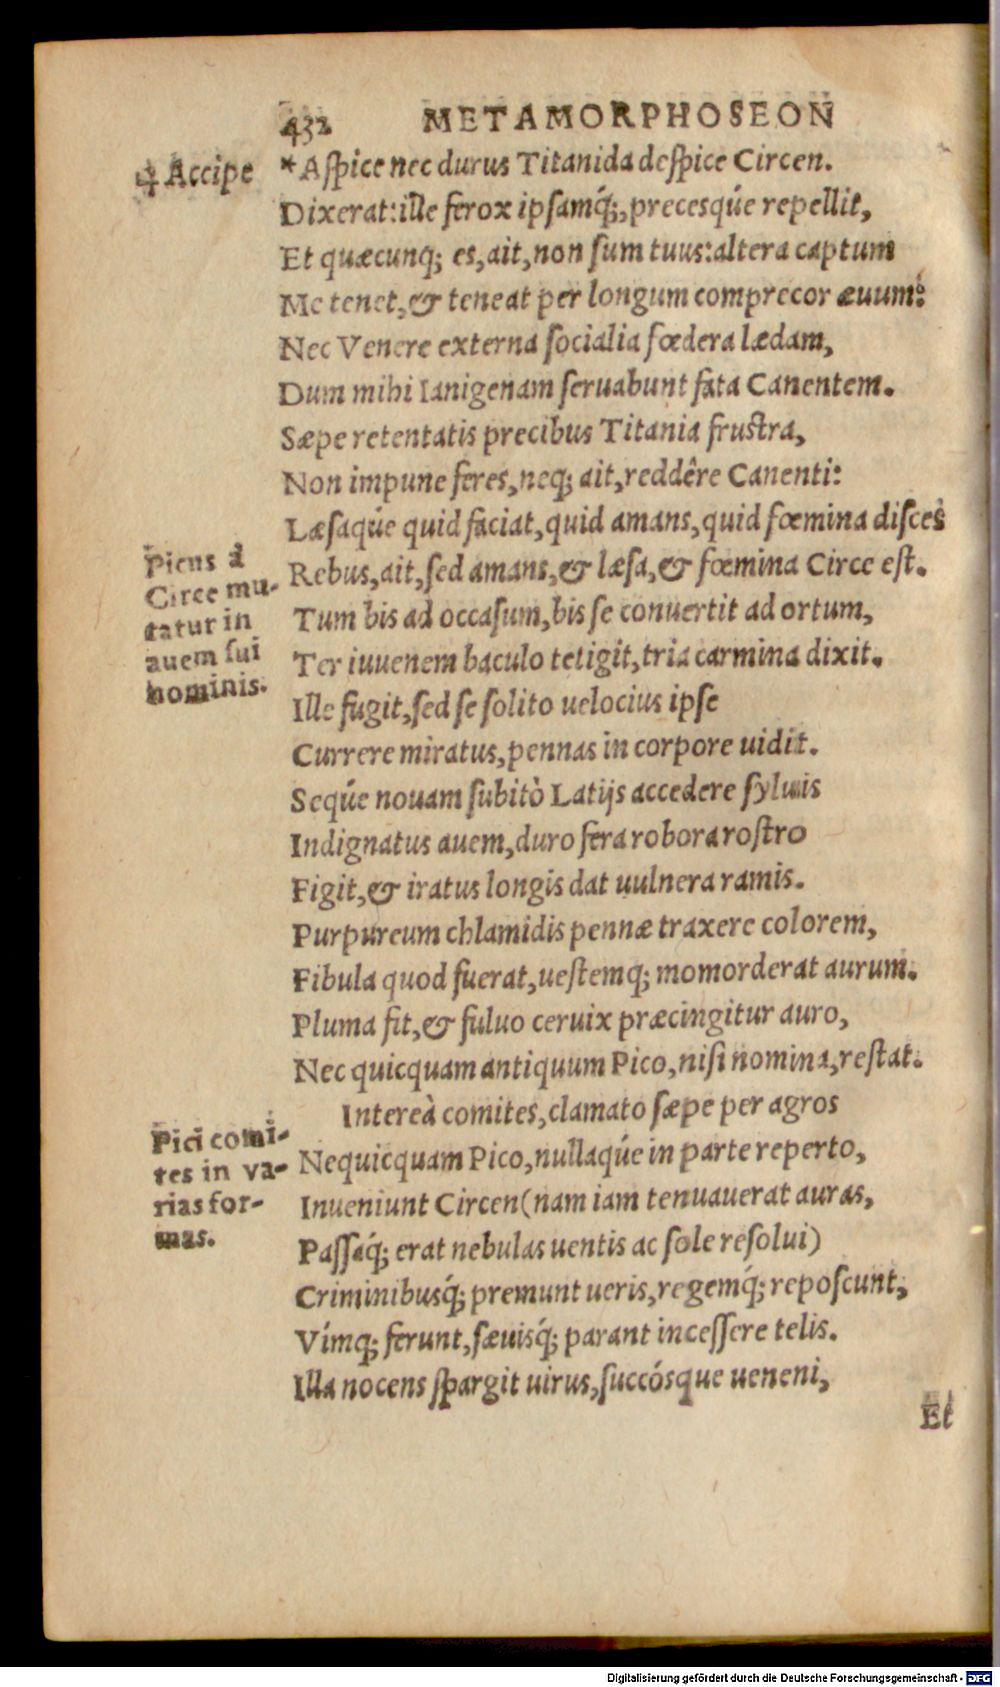 432 METAMORPHOSEON
⁂ Accipe
*Aspice nec durus Titanida despice Circen.
Dixerat: ille ferox ipsamq́;, precesqúe repellit,
Et quæcunq; es, ait, non sum tuus: altera captum
Me tenet, & teneat per longum comprecor æuum:
Nec Venere externa socialia fœdera lædam,
Dum mihi Ianigenam seruabunt fata Canentem.
Sæpe retentatis precibus Titania frustra,
Non impune feres, neq; ait, reddêre Canenti:
Læsaqúe quid faciat, quid amans, quid fœmina disces
Picus à
Circe mu-
tatur in
auem sui
nominis.
Rebus, ait, sed amans, & læsa, & fœmina Circe est.
Tum bis ad occasum, bis se conuertit ad ortum,
Ter iuuenem baculo tetigit, tria carmina dixit.
Ille fugit, sed se solito uelocius ipse
Currere miratus, pennas in corpore uidit.
Seqúe nouam subitò Latijs accedere syluis
Indignatus auem, duro fera robora rostro
Figit, & iratus longis dat uulnera ramis.
Purpureum chlamidis pennæ traxere colorem,
Fibula quod fuerat, uestemq; momorderat aurum.
Pluma fit, & fuluo ceruix præcingitur auro,
Nec quicquam antiquum Pico, nisi nomina, restat.
Intereà comites, clamato sæpe per agros
Pici comi-
tes in va-
rias for-
mas.
Nequicquam Pico, nullaqúe in parte reperto,
Inueniunt Circen (nam iam tenuauerat auras,
Passaq́; erat nebulas uentis ac sole resolui)
Criminibusq́; premunt ueris, regemq́; reposcunt,
Vímq; ferunt, sæuisq́; parant incessere telis.
Illa nocens spargit uirus, succósque ueneni,
Et
Digitalisierung gefördert durch die Deutsche Forschungsgemeinschaft - DFG